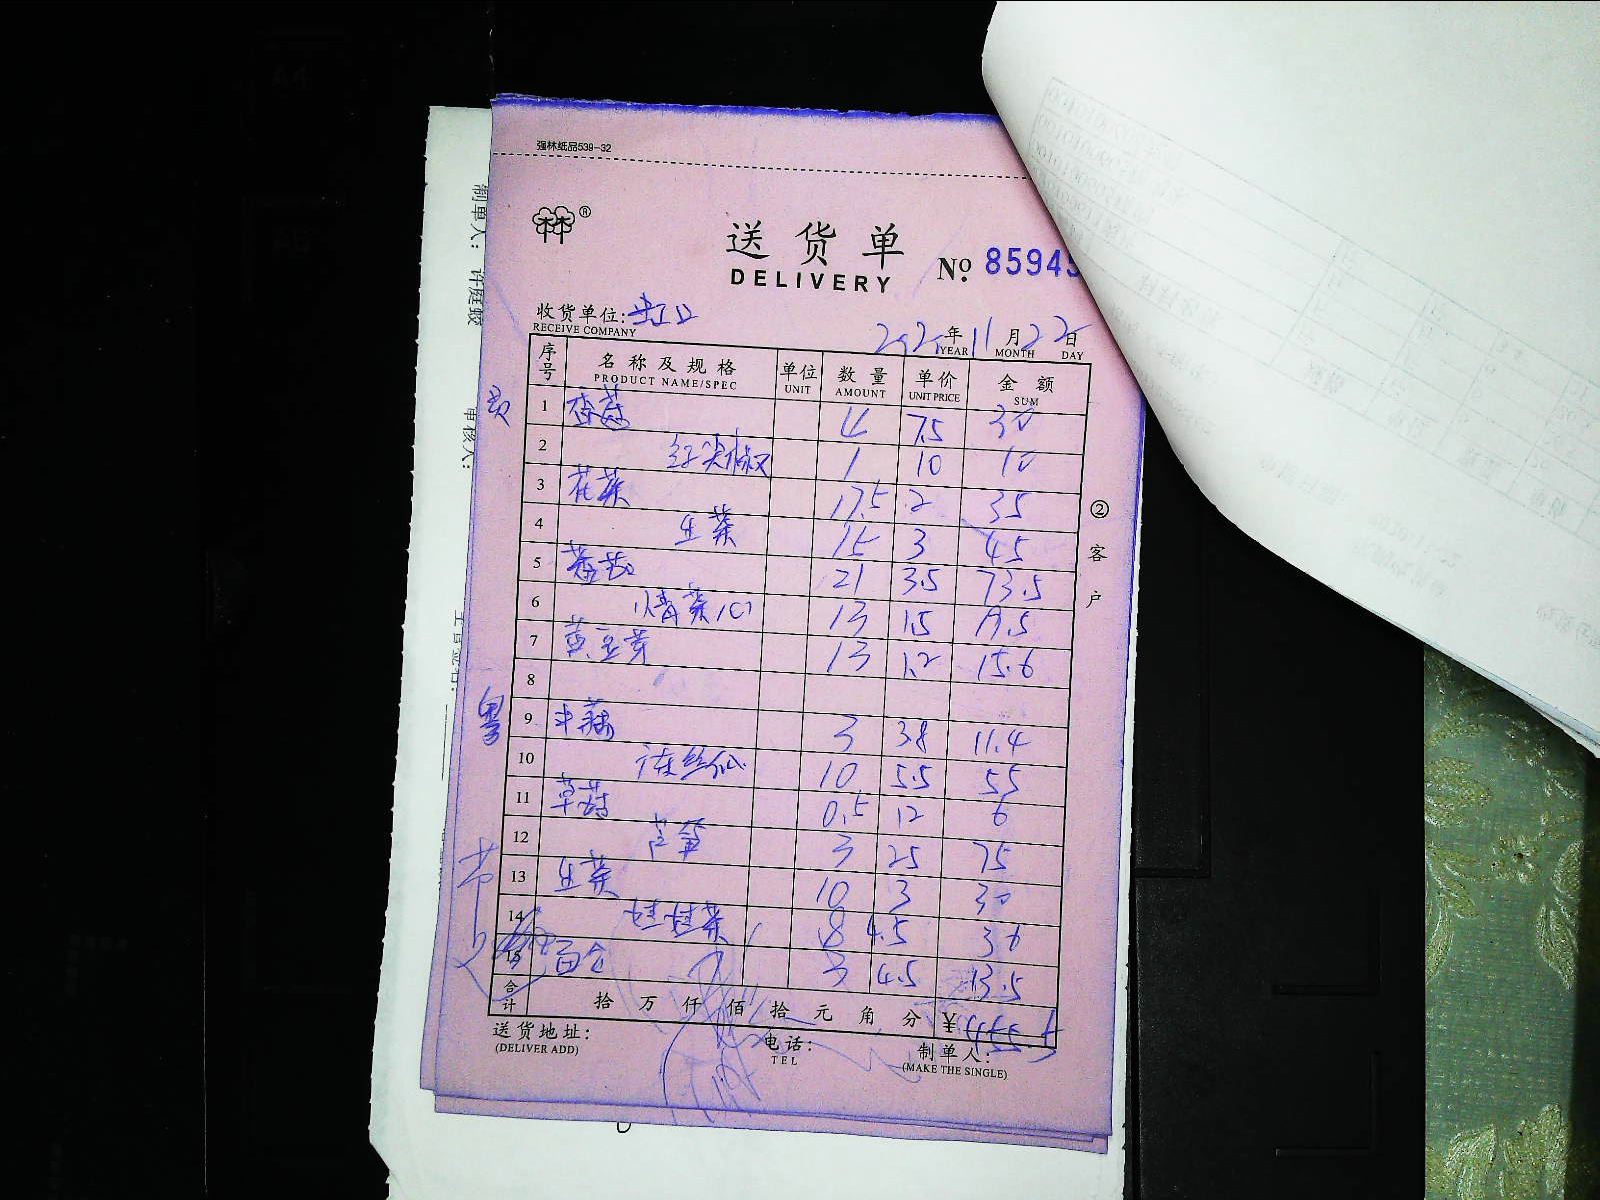 强林纸品539-32
®
送货单
№ 85945
DELIVERY
收货单位: 虹口
RECEIVE COMPANY
年 11 月 22 日
YEAR MONTH DAY
序号 名称及规格 单位 数量 单价 金额
PRODUCT NAME/SPEC UNIT AMOUNT UNIT PRICE SUM
1 香菇 4 7.5 30
2 红尖椒 1 10 10
3 花菜 17.5 2 35
4 生菜 15 3 45
5 番茄 21 3.5 73.5
6 青菜心 13 1.5 19.5
7 黄豆芽 13 1.2 15.6
8
9 3 3.8 11.4
10 丝瓜 10 5.5 55
11 草菇 0.5 12 6
12 芦笋 3 25 75
13 生菜 10 3 30
14 娃娃菜 8 4.5 36
15 百合 3 4.5 13.5
合计 拾万仟佰拾元角分 ¥ 455.5
送货地址:
(DELIVER ADD)
电话:
TEL
制单人:
(MAKE THE SINGLE)
②客户
制单人: 许庭蛟
审核人: